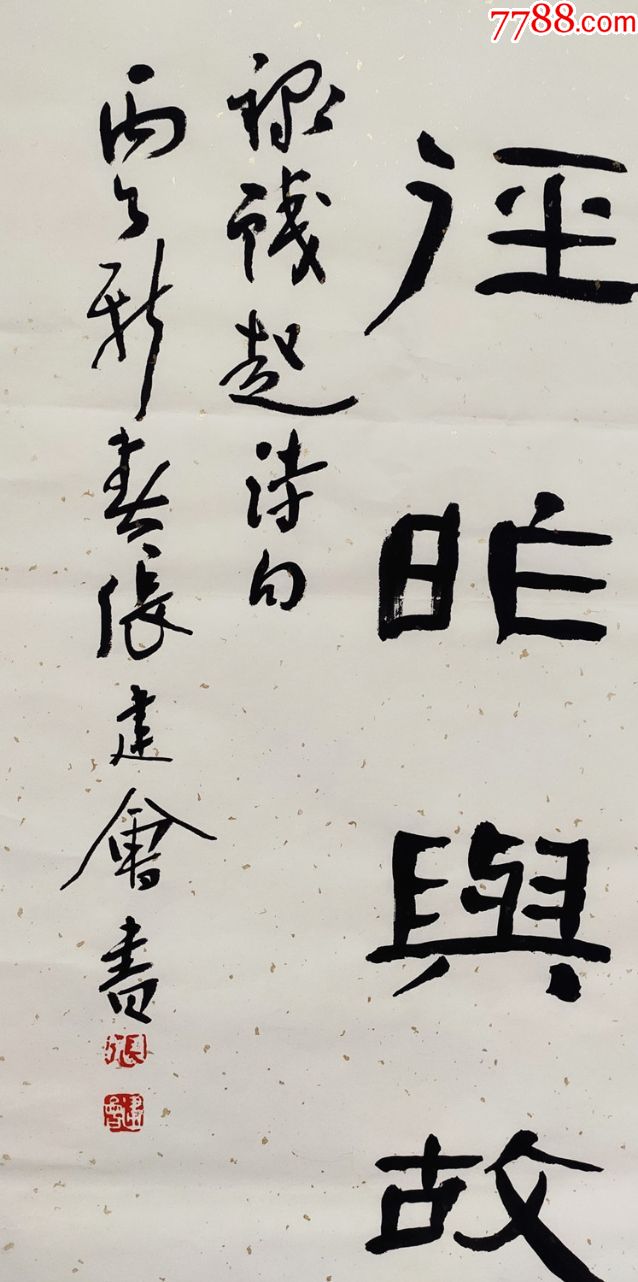 7788.com
徑昨與故
錄錢起詩句
丙新春張建會書
張
建會